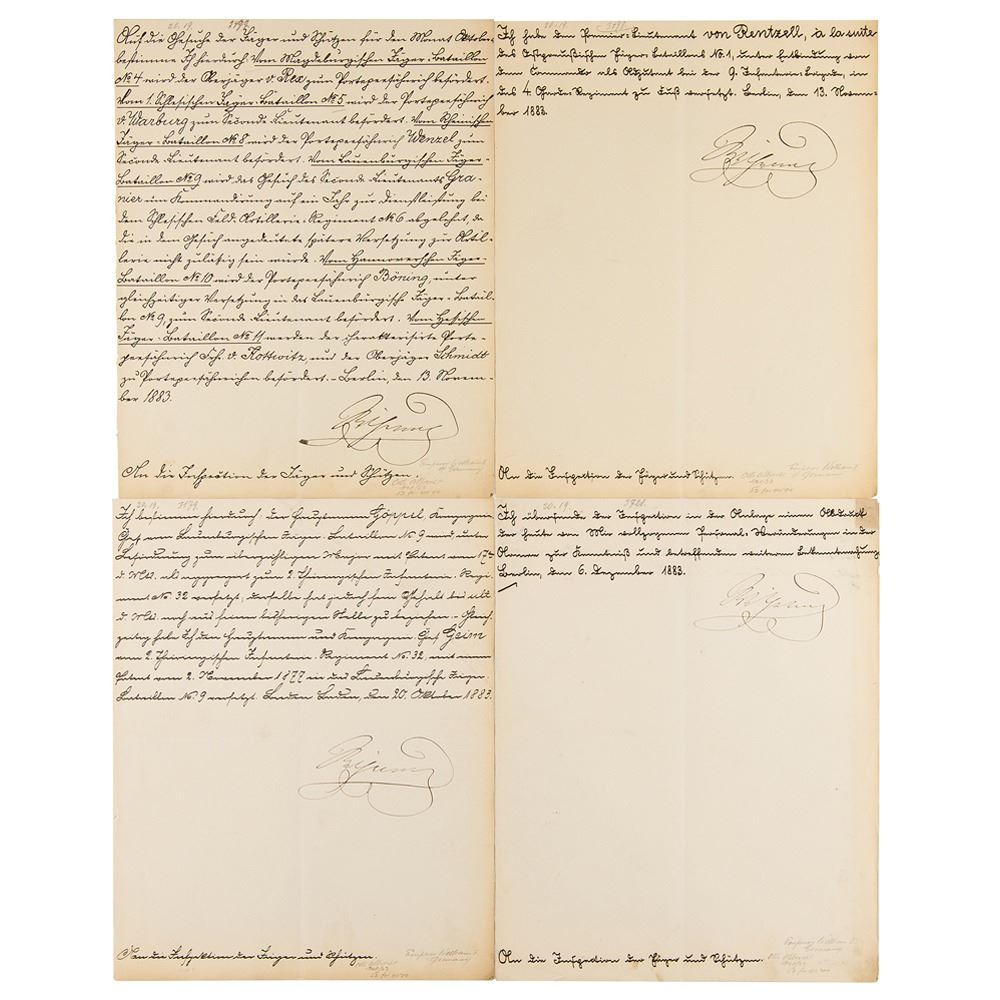 Auf die Gesuche der Jäger und Schützen für den Monat Oktober
bestimme Ich hierdurch: Vom Magdeburgischen Jäger-Bataillon
№ 4 wird der Oberjäger v. Rex zum Portepeefähnrich befördert.
Vom 1. Schlesischen Jäger-Bataillon № 5 wird der Portepeefähnrich
v. Warburg zum Seconde Lieutenant befördert. Vom Rheinischen
Jäger-Bataillon № 8 wird der Portepeefähnrich Wenzel zum
Seconde-Lieutenant befördert. Vom Lauenburgischen Jäger-
Bataillon № 9 wird das Gesuch des Seconde-Lieutenants Gra-
nier um Kommandirung auf ein Jahr zur Dienstleistung bei
dem Schlesischen Feld-Artillerie-Regiment № 6 abgelehnt, da
die in dem Gesuch angedeutete spätere Versetzung zur Artil-
lerie nicht zulässig sein würde. Vom Hannoverschen Jäger-
Bataillon № 10 wird der Portepeefähnrich Böning, unter
gleichzeitiger Versetzung in das Lauenburgische Jäger-Batail-
lon № 9, zum Seconde Lieutenant befördert. Vom Hessischen
Jäger-Bataillon № 11 werden der charakterisirte Porte-
peefähnrich Frh. v. Kottwitz und der Oberjäger Schmidt
zu Portepeefähnrichen befördert. – Berlin, den 13. Novem-
ber 1883.
Wilhelm
An die Inspection der Jäger und Schützen.
Ich habe den Premier-Lieutenant von Rentzell, à la suite
des Ostpreußischen Jäger-Bataillons № 1, unter Entbindung von
dem Commando als Adjutant bei der 9. Infanterie-Brigade, in
das 4. Garde-Regiment zu Fuß versetzt. Berlin, den 13. Novem-
ber 1883.
Wilhelm
An die Inspection der Jäger und Schützen.
Ich bestimme hierdurch: der Hauptmann Göppel, Kompagnie-
Chef vom Lauenburgischen Jäger-Bataillon № 9 wird unter
Beförderung zum überzähligen Major mit Patent vom
d. Mts. als aggregirt zum 2. Thüringischen Infanterie-Regi-
ment № 32 versetzt, derselbe hat jedoch sein Gehalt bis ult.
d. Mts. noch aus seiner bisherigen Stelle zu beziehen. – Gleich-
zeitig habe Ich den Hauptmann und Kompagnie-Chef Heim
vom 2. Thüringischen Infanterie-Regiment № 32, mit einem
Patent vom 2. November 1877 in das Lauenburgische Jäger-
Bataillon № 9 versetzt. Baden Baden, den 20. Oktober 1883.
Wilhelm
An die Inspektion der Jäger und Schützen.
Ich übersende der Inspection in der Anlage einen Abdruck
der heute von Mir vollzogenen Personal-Veränderungen in der
Armee zur Kenntniß und betreffenden weiteren Bekanntmachung
Berlin, den 6. Dezember 1883.
Wilhelm
An die Inspection der Jäger und Schützen.